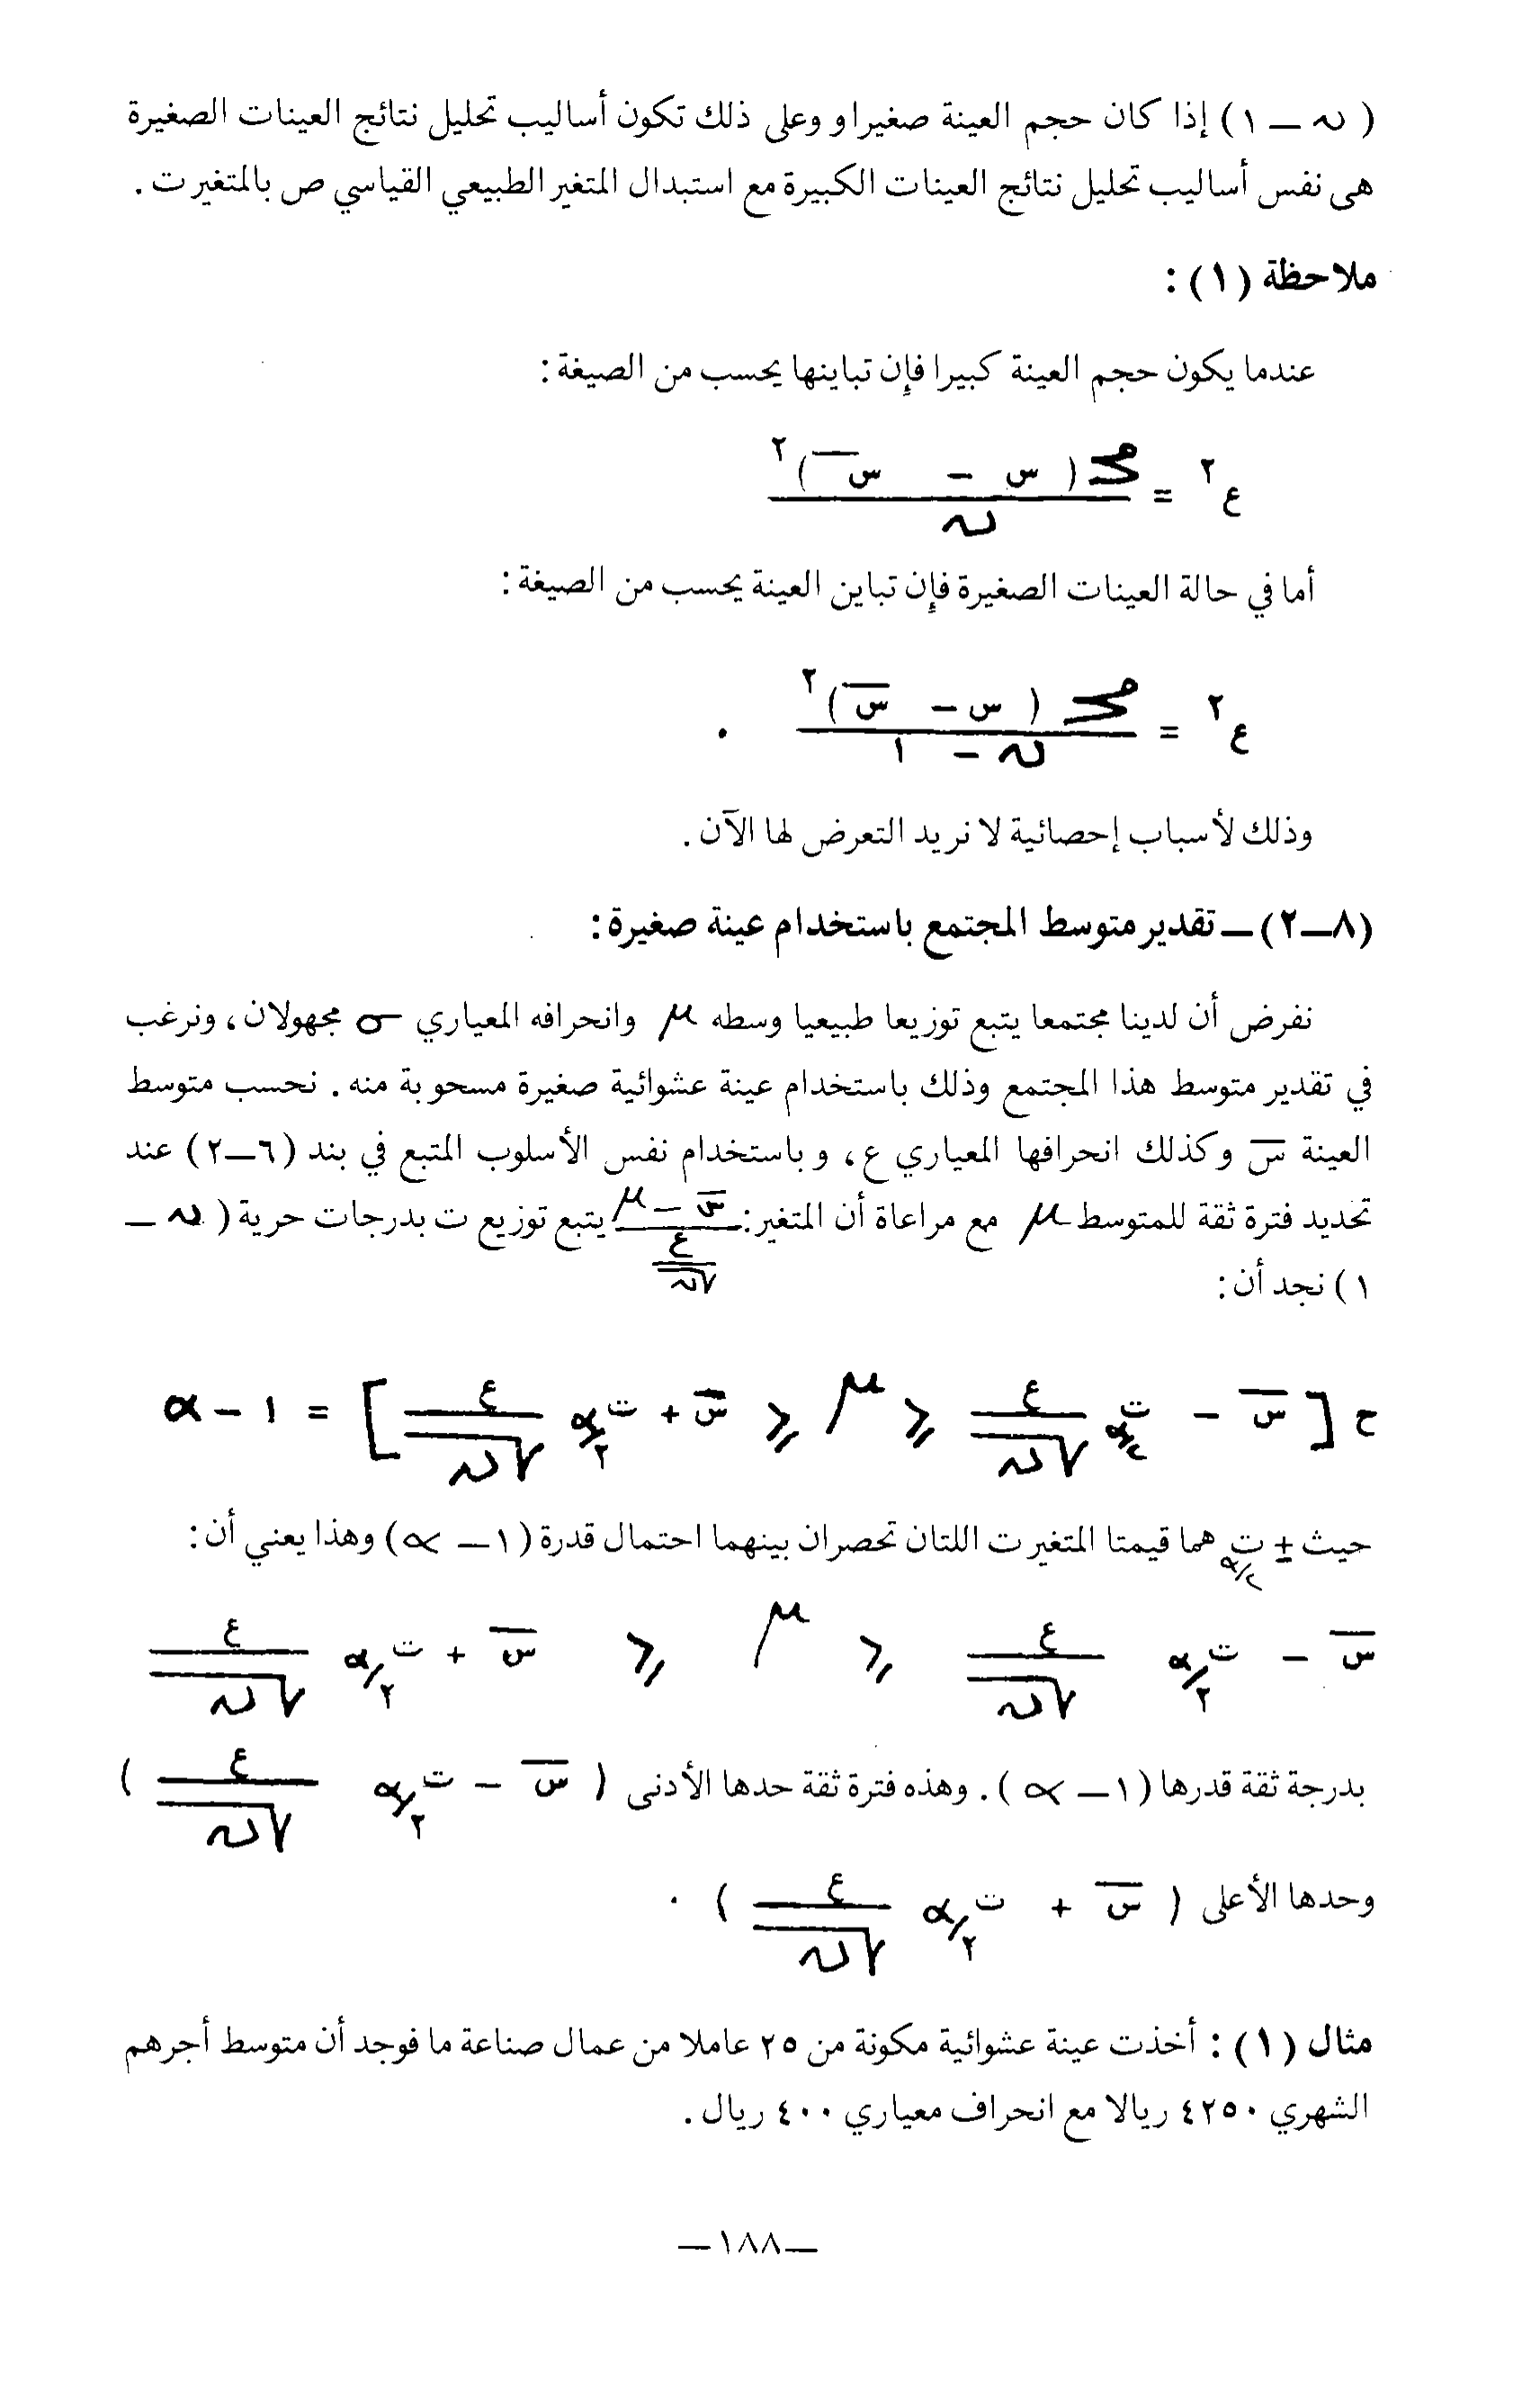 ( ن — ١ ) إذا كان حجم العينة صغيرا و وعلى ذلك تكون أساليب تحليل نتائج العينات الصغيرة
هى نفس أساليب تحليل نتائج العينات الكبيرة مع استبدال المتغير الطبيعي القياسي ص بالمتغير ت .
ملاحظة (١) :
عندما يكون حجم العينة كبيرا فإن تباينها يحسب من الصيغة :
ع٢ = مجـ ( س − س̅ )٢ / ن
أما في حالة العينات الصغيرة فإن تباين العينة يحسب من الصيغة :
ع٢ = مجـ ( س − س̅ )٢ / ن − ١ .
وذلك لأسباب إحصائية لا نريد التعرض لها الآن .
(٨—٢) — تقدير متوسط المجتمع باستخدام عينة صغيرة :
نفرض أن لدينا مجتمعا يتبع توزيعا طبيعيا وسطه μ وانحرافه المعياري σ مجهولان ، ونرغب
في تقدير متوسط هذا المجتمع وذلك باستخدام عينة عشوائية صغيرة مسحوبة منه . نحسب متوسط
العينة س̅ وكذلك انحرافها المعياري ع ، و باستخدام نفس الأسلوب المتبع في بند (٦—٢) عند
تحديد فترة ثقة للمتوسط μ مع مراعاة أن المتغير : س̅ − μ / ع / √ن يتبع توزيع ت بدرجات حرية ( ن —
١ ) نجد أن :
ح [ س̅ − ت α/٢ ع / √ن ⩽ μ ⩽ س̅ + ت α/٢ ع / √ن ] = ١ − α
حيث ± ت α/٢ هما قيمتا المتغير ت اللتان تحصران بينهما احتمال قدرة ( ١ — α ) وهذا يعني أن :
س̅ − ت α/٢ ع / √ن ⩽ μ ⩽ س̅ + ت α/٢ ع / √ن
بدرجة ثقة قدرها ( ١ — α ) . وهذه فترة ثقة حدها الأدنى ( س̅ − ت α/٢ ع / √ن )
وحدها الأعلى ( س̅ + ت α/٢ ع / √ن ) .
مثال (١) : أخذت عينة عشوائية مكونة من ٢٥ عاملا من عمال صناعة ما فوجد أن متوسط أجرهم
الشهري ٤٢٥٠ ريالا مع انحراف معياري ٤٠٠ ريال .
— ١٨٨ —